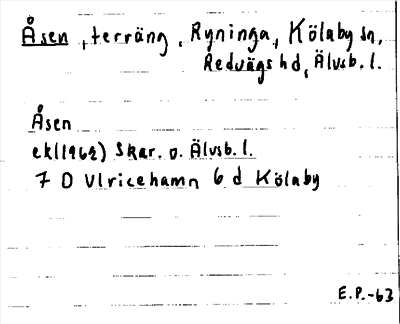 Åsen, terräng, Ryninga, Kölaby sn,
Redvägs hd, Älvsb. l.
Åsen
ek(1962) Skar. o. Älvsb. l.
7 D Ulricehamn 6 d Kölaby
E.P.-63